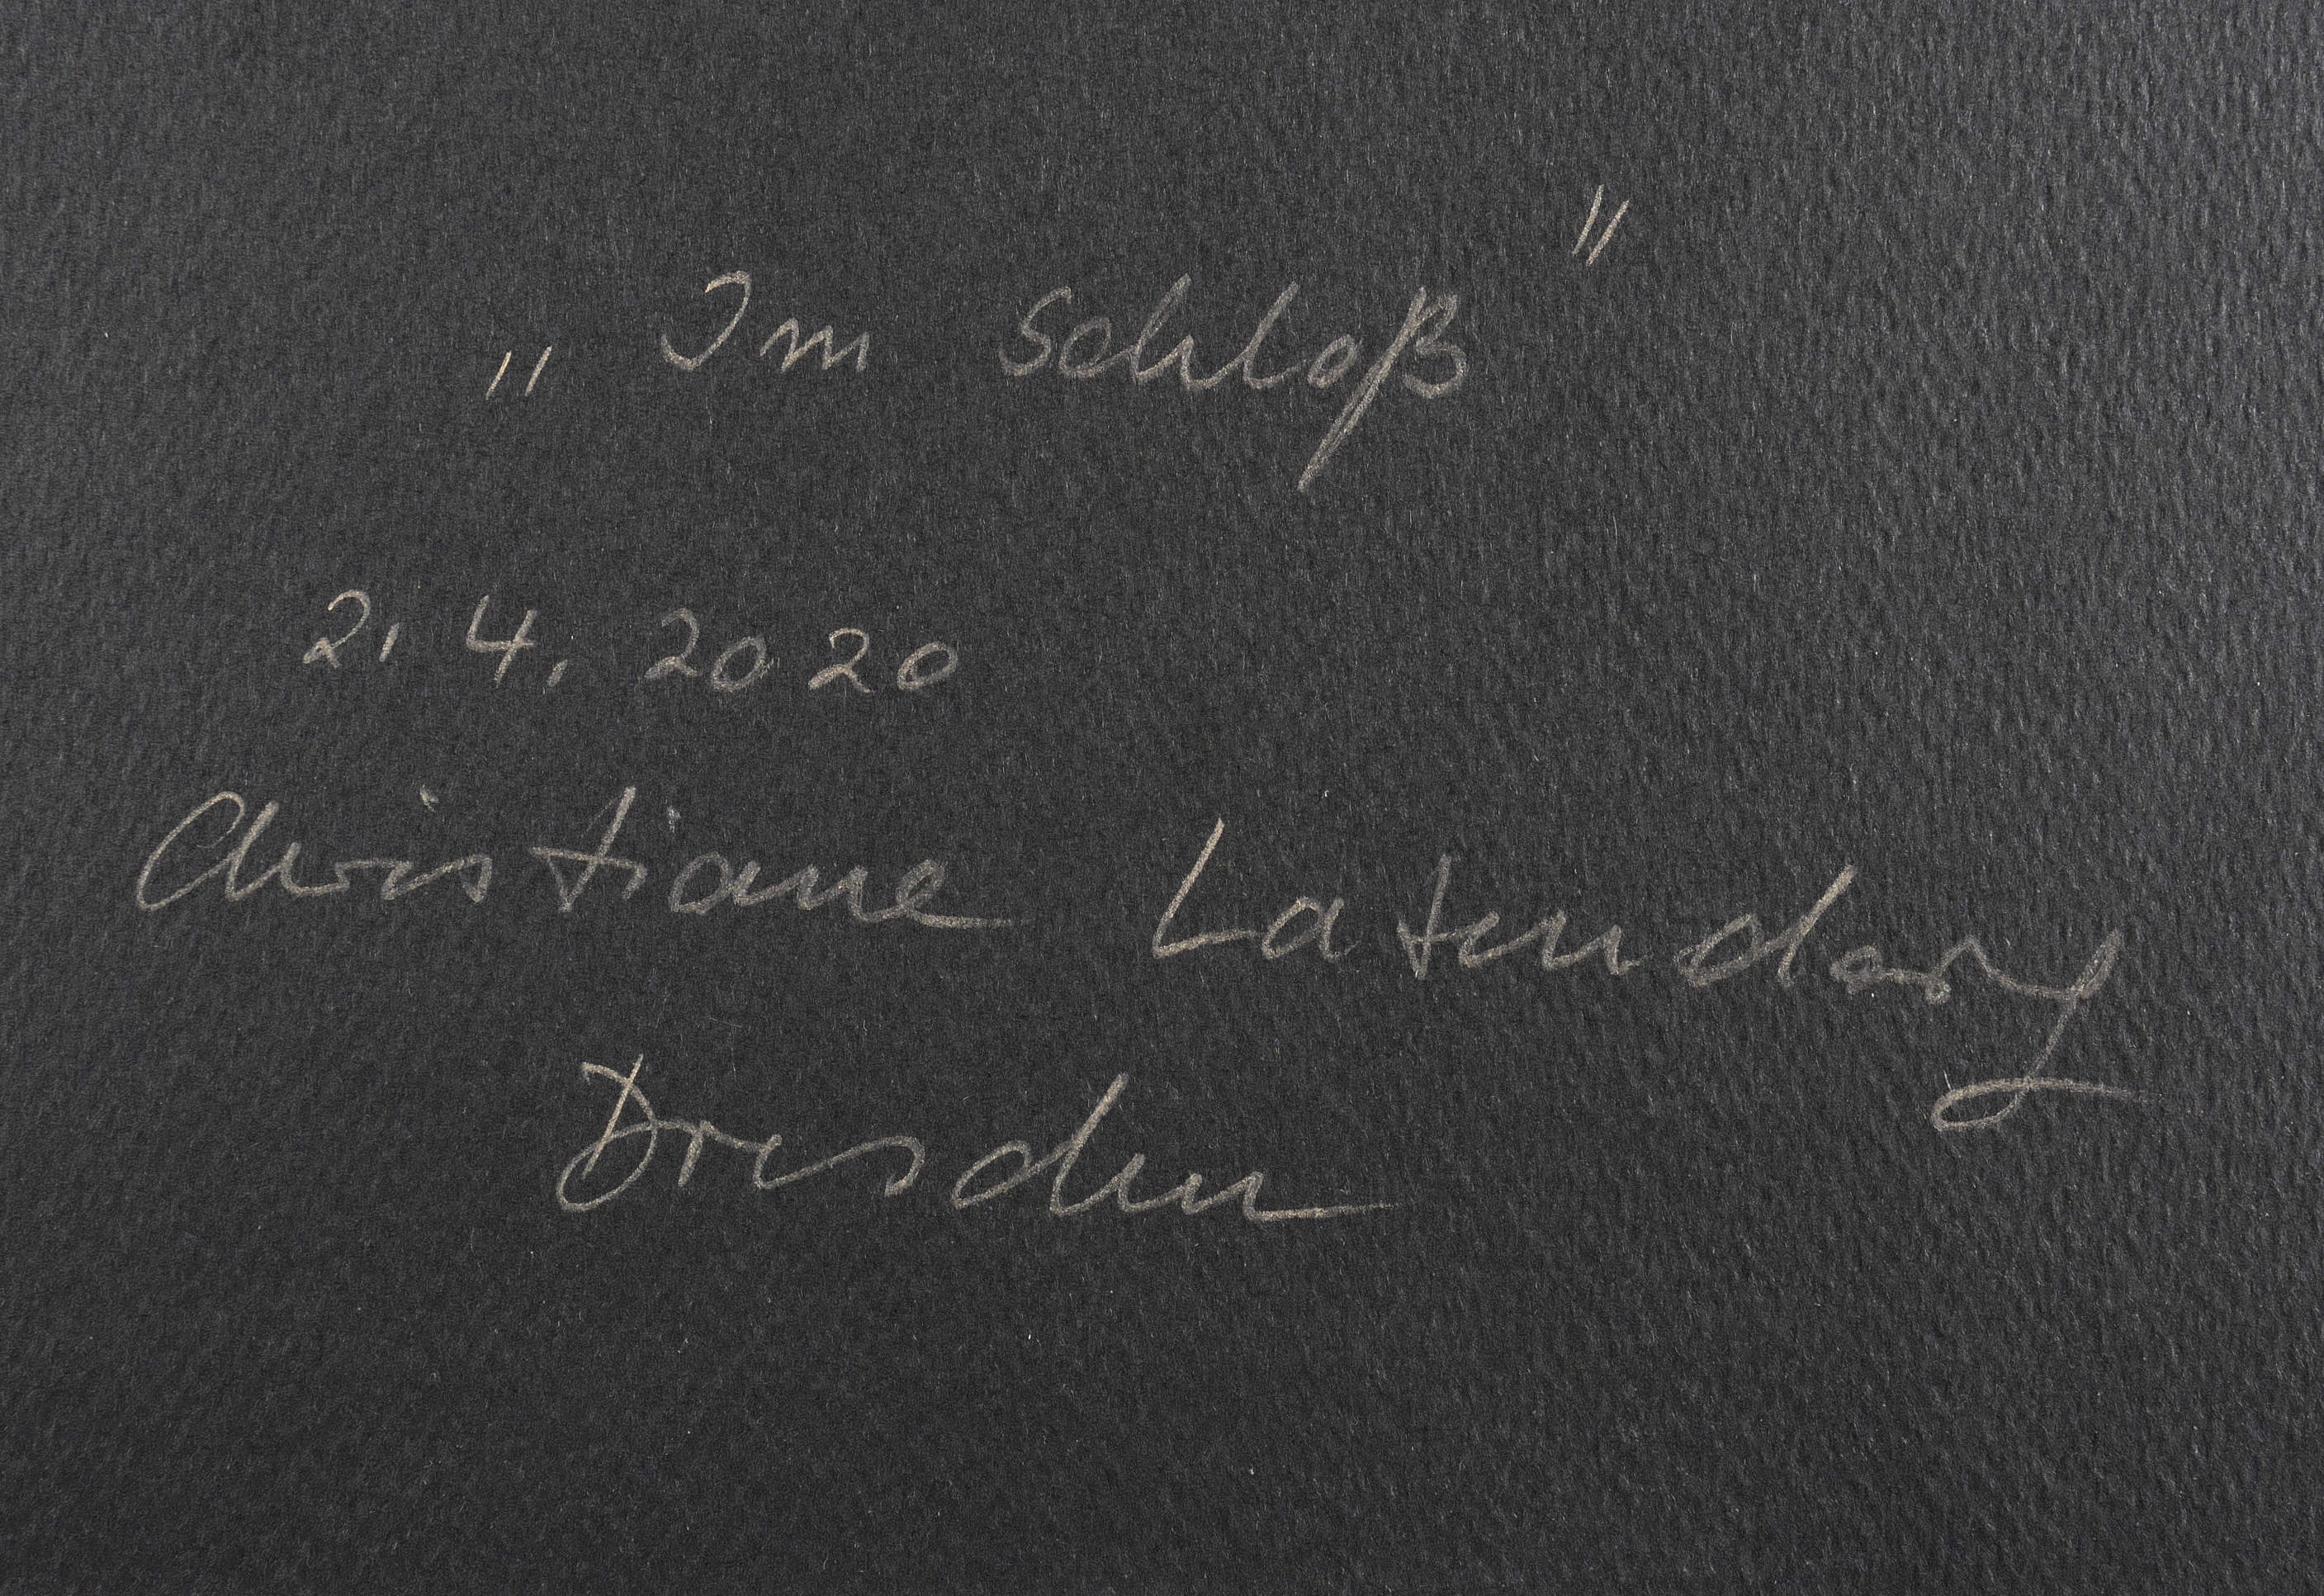 „Im Schloß"
2.4.2020
Christiane Latendorf
Dresden